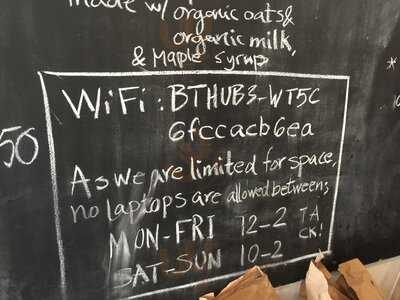 made w/ organic oats &
organic milk,
& Maple syrup
WiFi: BTHUB3-WT5C
6fccacb6ea
50
As we are limited for space,
no laptops are allowed between;
MON-FRI 12-2 TA
CK!
SAT-SUN 10-2